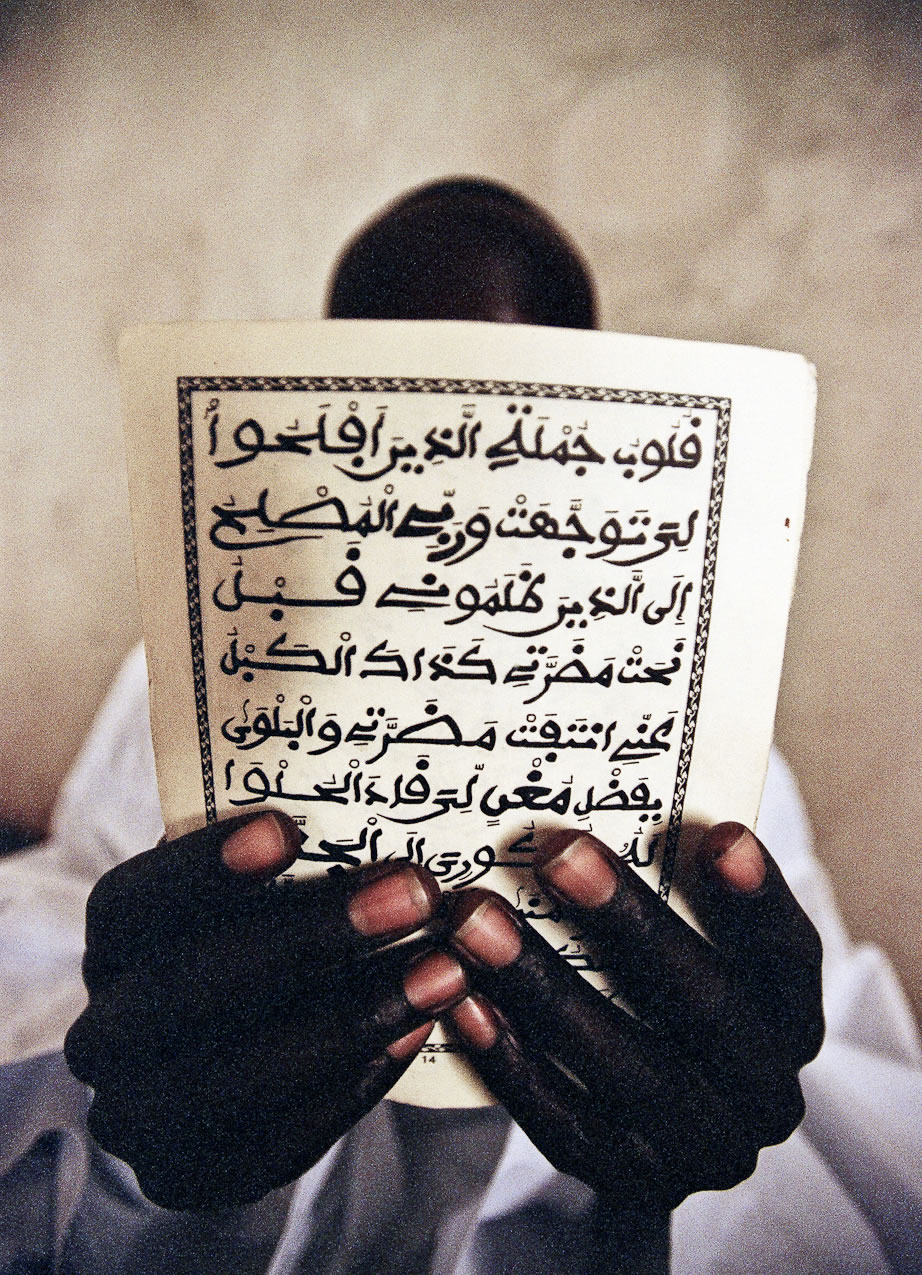 قُلُوبُ جُمْلَةِ الَّذِينَ أَفْلَحُوا
لِتِى تَوَجَّهَتْ وَرَبِّي الْمُصْلِحُ
إِلَى الَّذِينَ ظَلَمُونِي قَبْلُ
نَحَتْ مَضَرَّتِي كَذَاكَ الْكَبْلُ
عَنِّي انْتَفَتْ مَضَرَّتِي وَالْبَلْوَى
بِفَضْلِ مُغْنٍ لِتِى قَادَ الْحَلْوَا
إِلَى
14